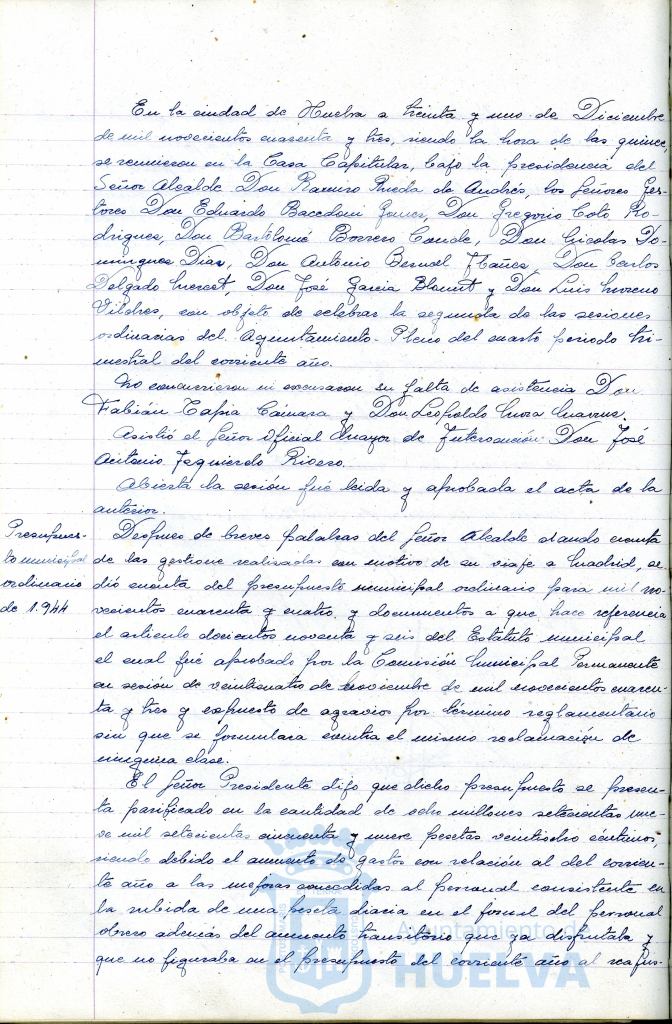 En la ciudad de Huelva a treinta y uno de Diciembre
de mil novecientos cuarenta y tres, siendo la hora de las quince,
se reunieron en la Casa Capitular, bajo la presidencia del
Señor Alcalde Don Ramiro Rueda de Andrés, los Señores Ges-
tores Don Eduardo Bacedoni Gomez, Don Gregorio Coto Ro-
drigues, Don Bartolomé Borrero Conde, Don Nicolas Do-
mingues Dias, Don Antonio Bernal Ibañes, Don Carlos
Delgado, Don José Garcia Blount y Don Luis Moreno
Vilches, con objeto de celebrar la segunda de las sesiones
ordinarias del Ayuntamiento-Pleno del cuarto periodo tri-
mestral del corriente año.
No concurrieron ni excusaron su falta de asistencia Don
Fabián Tapia Cámara y Don Leopoldo Mora
Asistió el Señor Oficial Mayor de Intervención Don José
Antonio Izquierdo Rivero.
Abierta la sesión fué leida y aprobada el acta de la
anterior.
Presupues-
to municipal
ordinario
de 1.944
Despues de breves palabras del Señor Alcalde dando cuenta
de las gestione realisadas con motivo de su viaje a Madrid, se
dió cuenta del presupuesto municipal ordinario para mil no-
vecientos cuarenta y cuatro, y documentos a que hace referencia
el articulo docientos noventa y seis del Estatuto municipal
el cual fué aprobado por la Comisión Municipal Permanente
en sesión de veinticuatro de Noviembre de mil novecientos cuaren-
ta y tres y expuesto de agravios por término reglamentario
sin que se formulara contra el mismo reclamación de
ninguna clase.
El Señor Presidente dijo que dicho presupuesto se presen-
ta parificado en la cantidad de ocho millones setecientas nue-
ve mil setecientas cincuenta y nueve pesetas veintiocho céntimos,
siendo debido el aumento de gastos con relación al del corrien-
te año a las mejoras concedidas al personal consistente en
la subida de una peseta diaria en el jornal del personal
obrero además del aumento transitorio que ya disfrutaba y
que no figuraba en el presupuesto del corriente año al reajus-
Ayuntamiento de
HUELVA